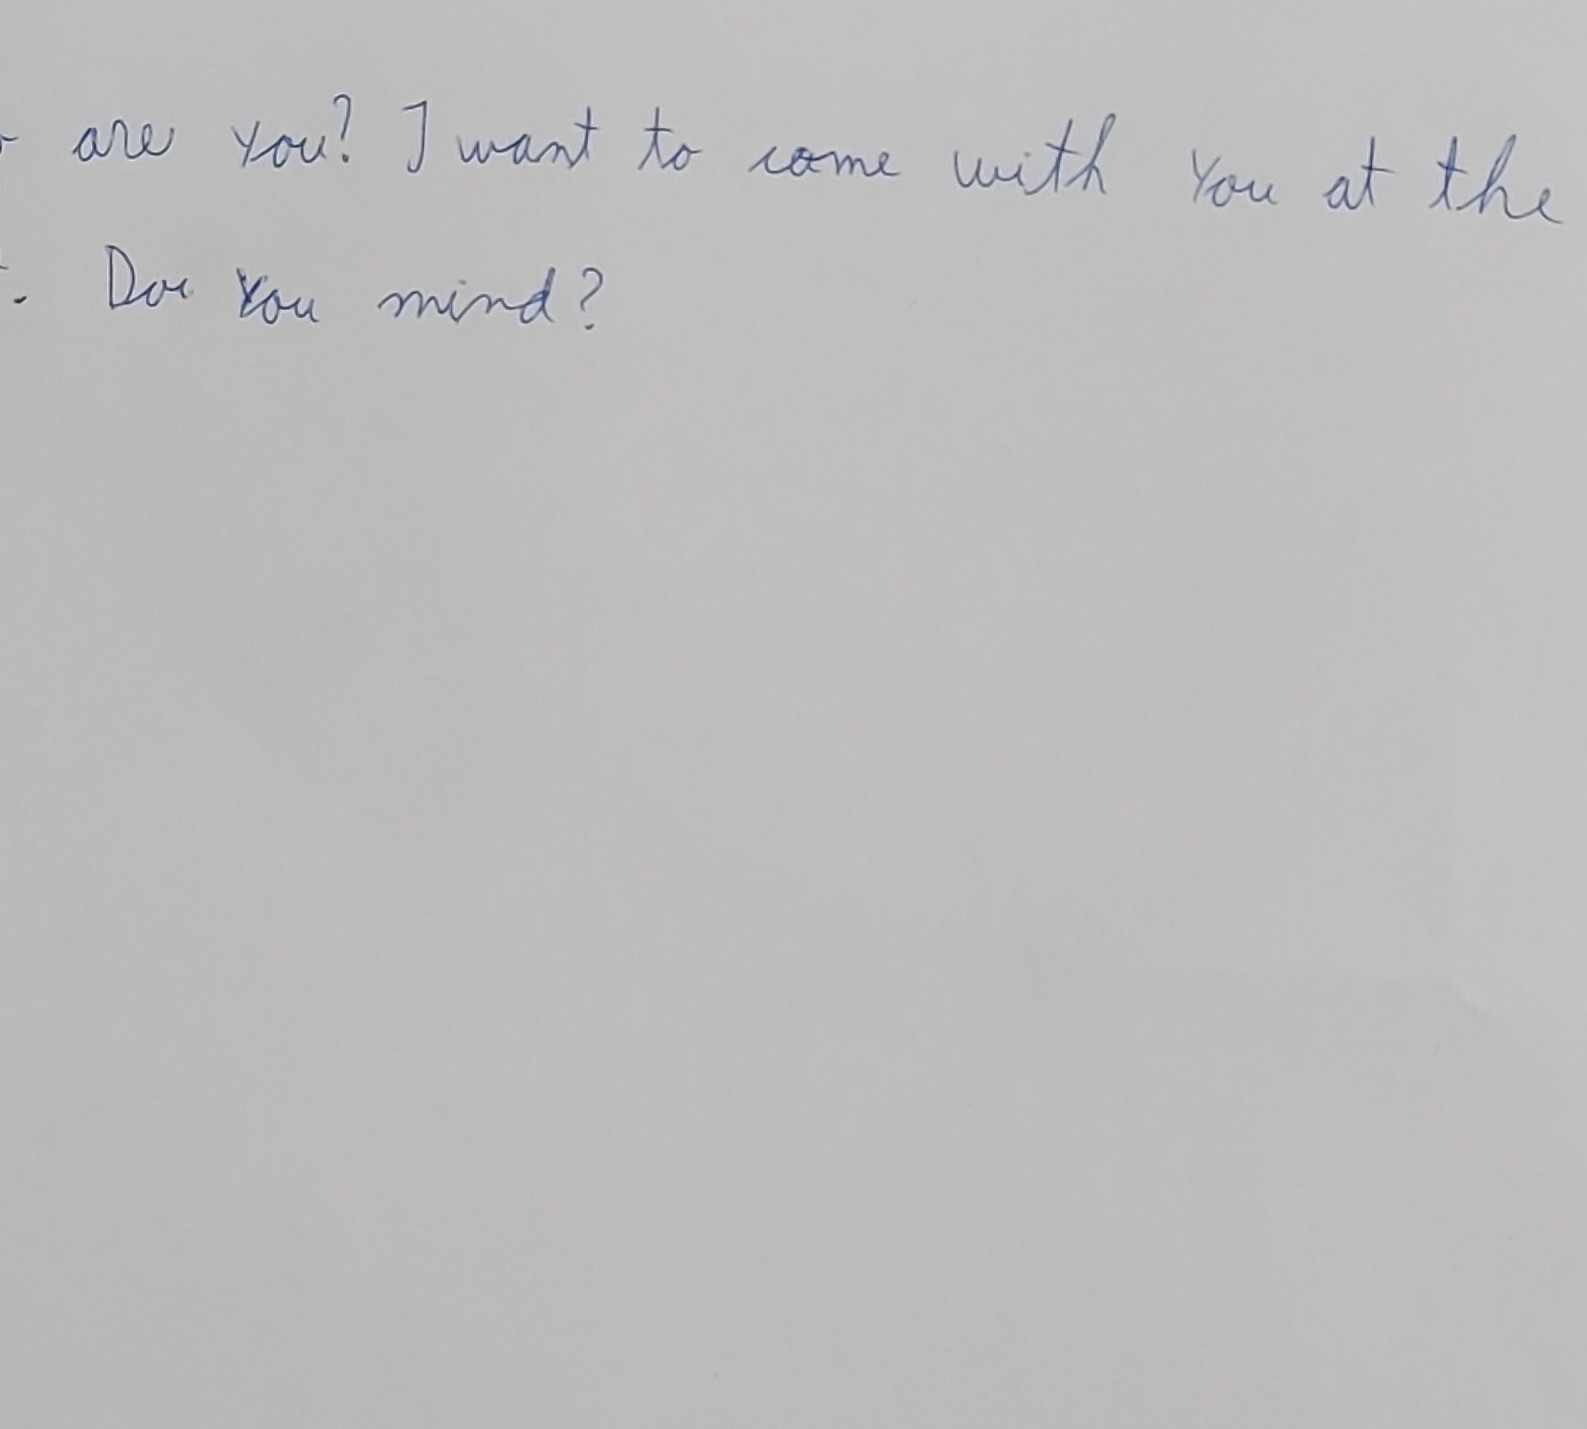 are you? I want to come with you at the
. Doe you mind?